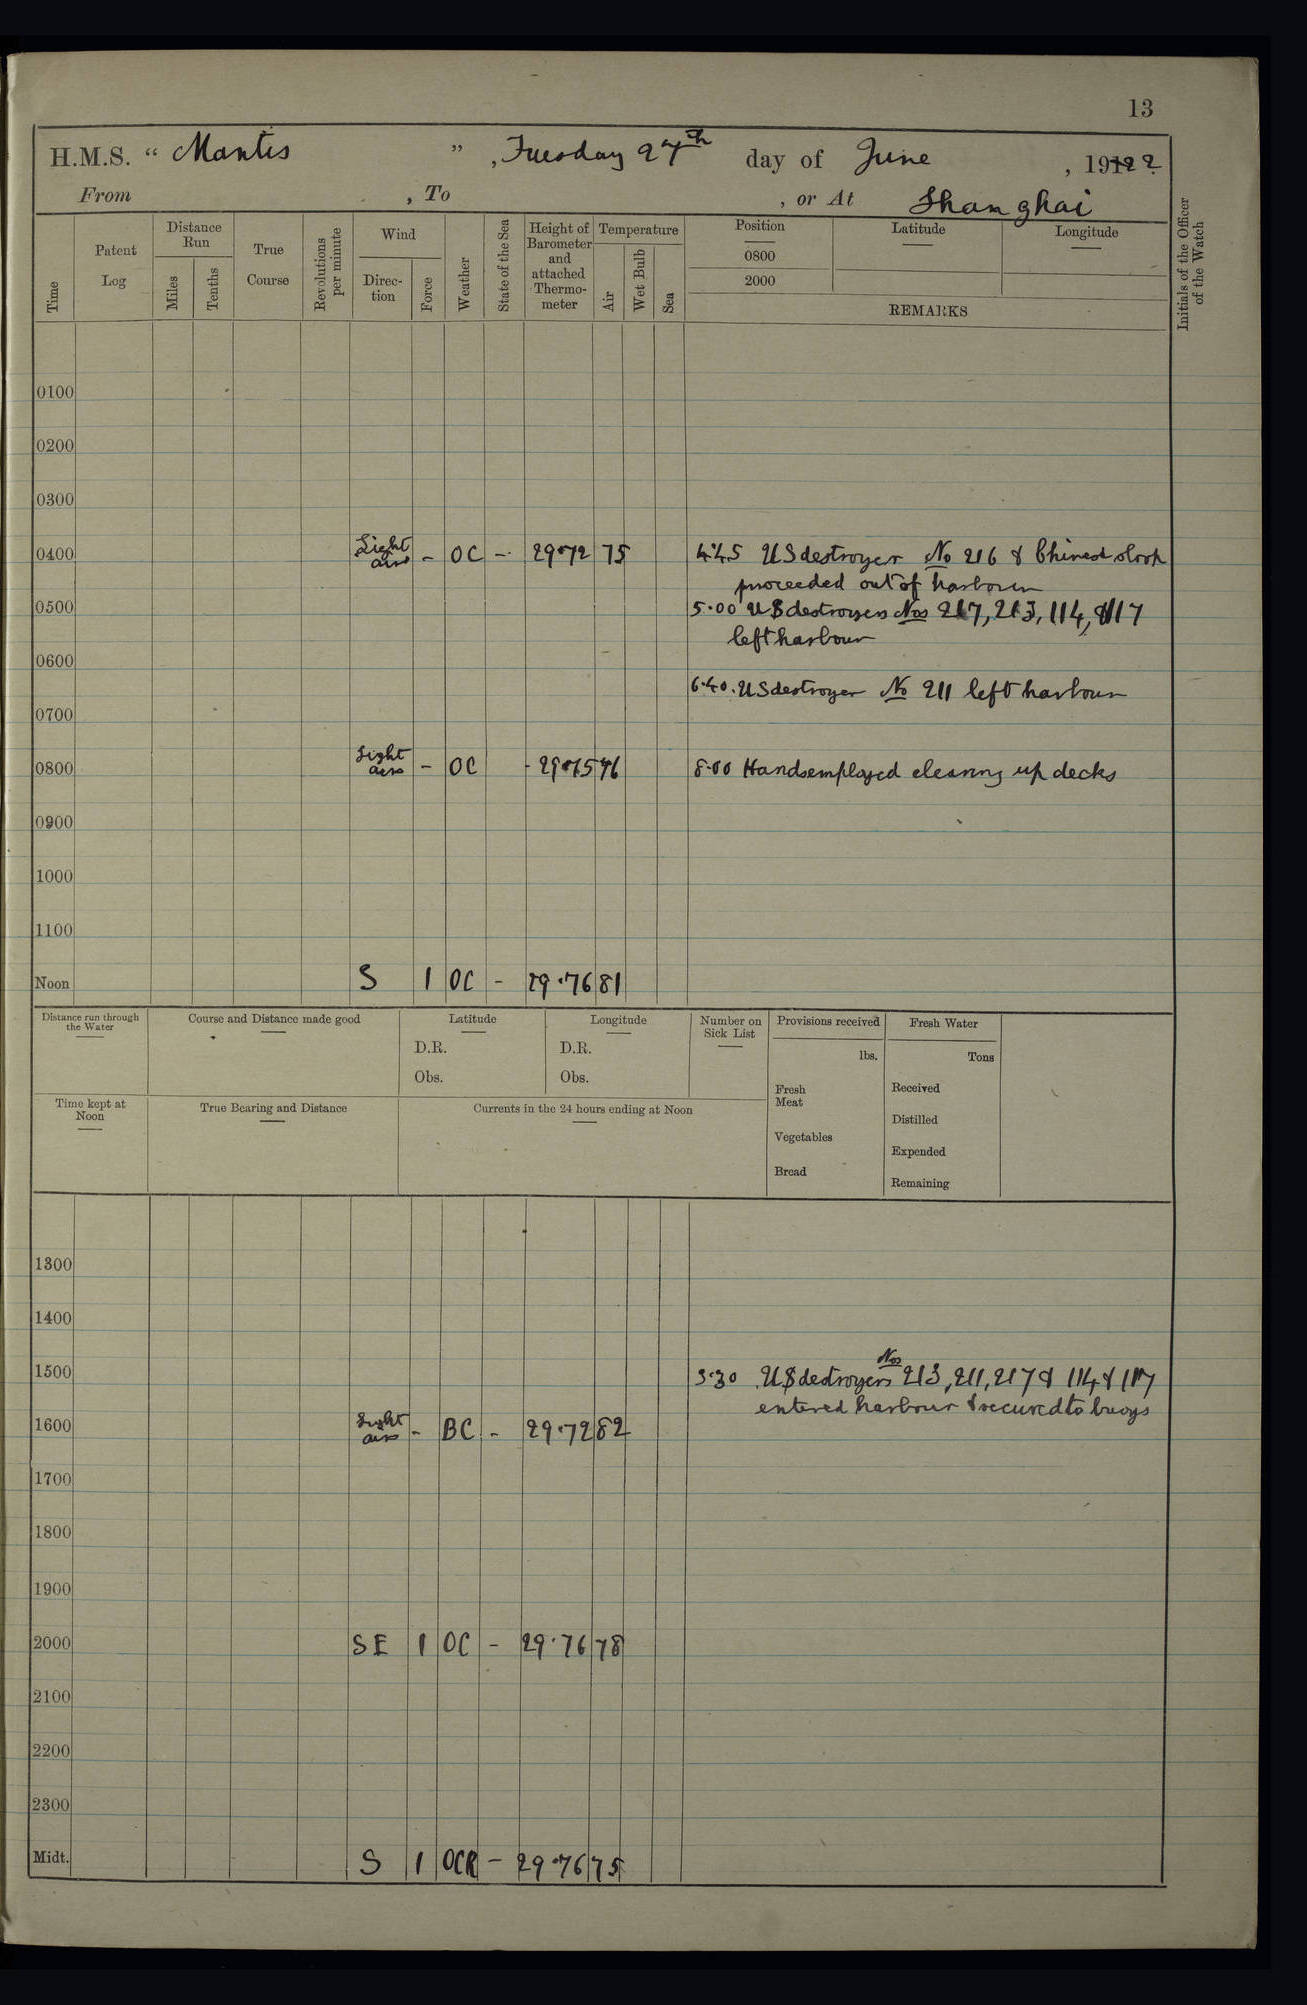 13
H.M.S. “ Mantis ” , Tuesday 27th day of June , 1922
From , To , or At Shanghai
Time
Patent Log
Distance Run
Miles
Tenths
True Course
Revolutions per minute
Wind
Direc-tion
Force
Weather
State of the Sea
Height of Barometer and attached Thermo-meter
Temperature
Air
Wet Bulb
Sea
Position
0800
2000
Latitude
Longitude
REMARKS
Initials of the Officer of the Watch
0100
0200
0300
0400 Light airs - OC - 29.72 75 4.45 US destroyer No 216 & Chinese sloop
proceeded out of harbour
0500 5.00 US destroyers Nos 217, 213, 114, & 117
left harbour
0600
6.40. US destroyer No 211 left harbour
0700
0800 Light airs - OC - 29.75 76 8.00 Hands employed cleaning up decks
0900
1000
1100
Noon S 1 OC - 29.76 81
Distance run through the Water
Course and Distance made good
Latitude
D.R.
Obs.
Longitude
D.R.
Obs.
Number on Sick List
Provisions received
lbs.
Fresh Meat
Vegetables
Bread
Fresh Water
Tons
Received
Distilled
Expended
Remaining
Time kept at Noon
True Bearing and Distance
Currents in the 24 hours ending at Noon
1300
1400
1500 3.30 US destroyers Nos 213, 211, 217 & 114 & 117
entered harbour & secured to buoys
1600 Light airs - BC - 29.72 82
1700
1800
1900
2000 SE 1 OC - 29.76 78
2100
2200
2300
Midt. S 1 OCR - 29.76 75